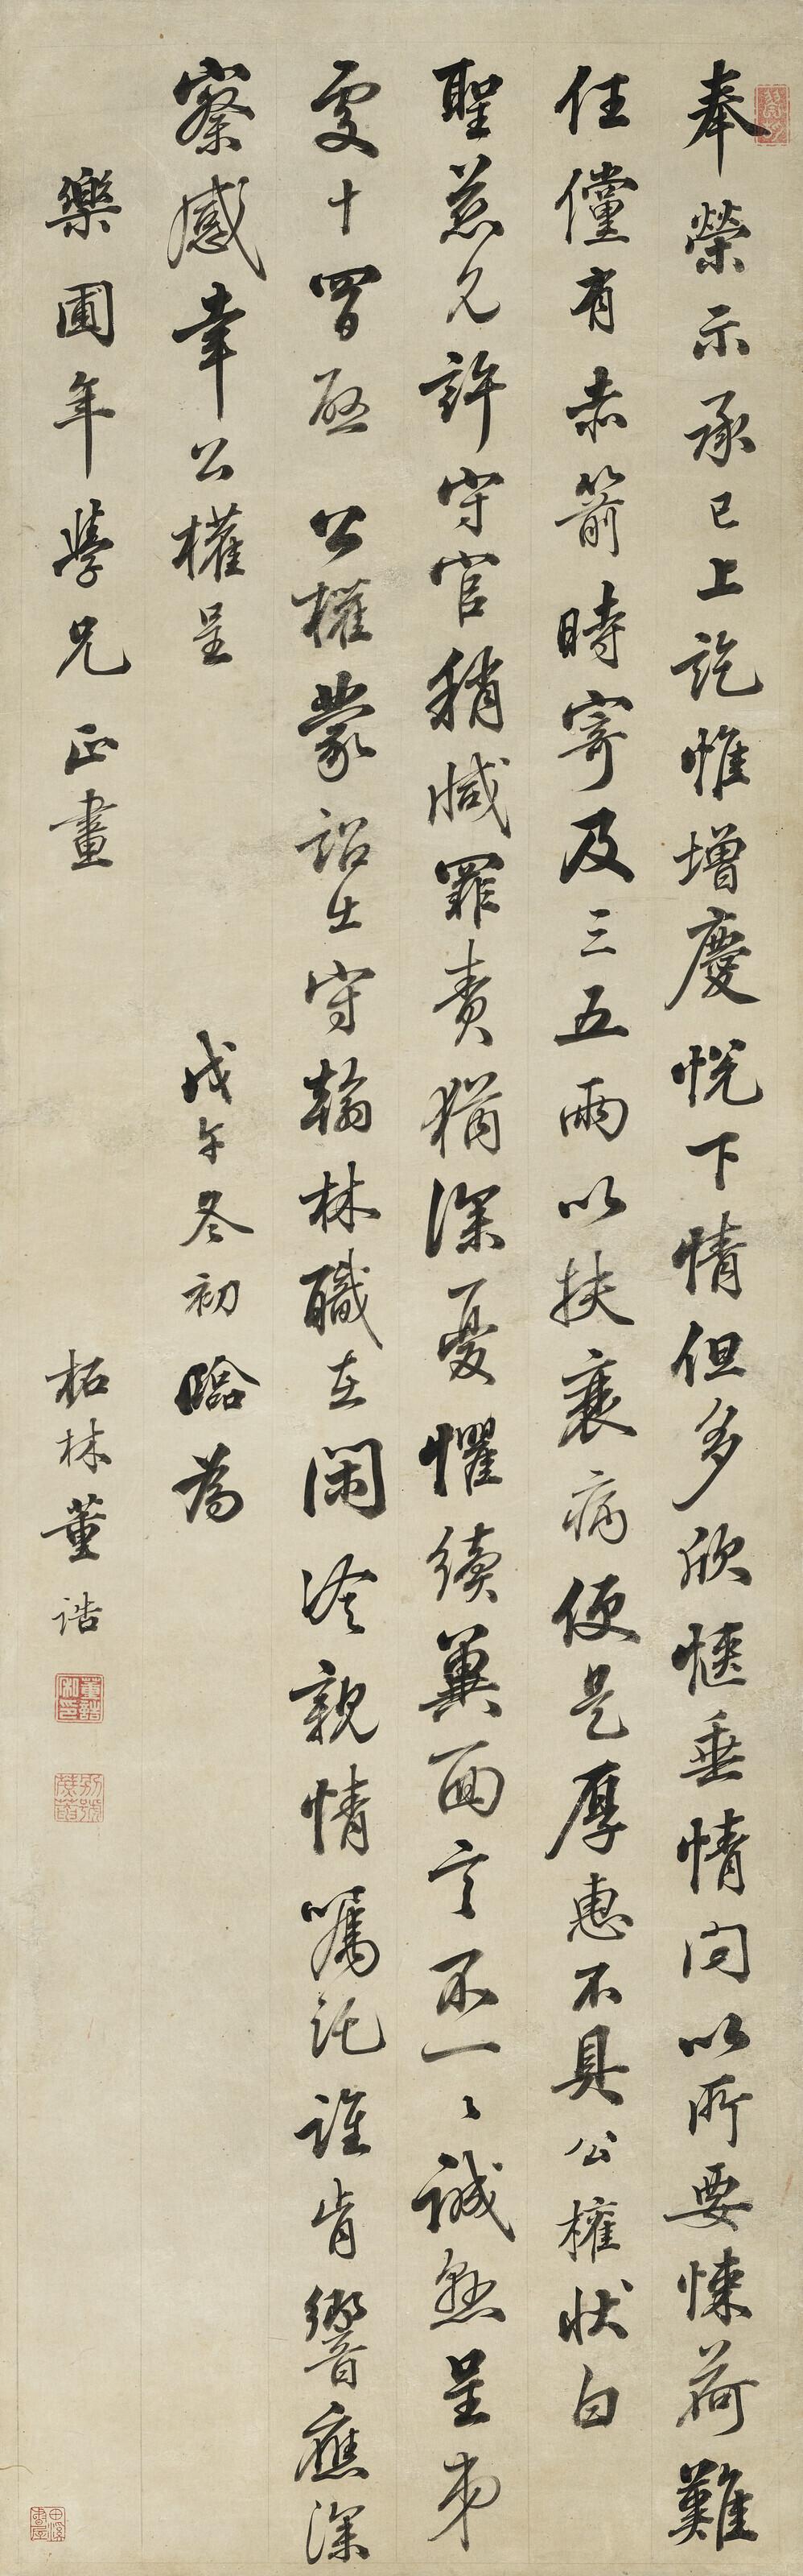 奉榮示承已上訖惟增慶悅下情但多欣愜垂情問以所要悚荷難
任儻有赤箭時寄及三五兩以扶衰病便是厚惠不具公權狀白
聖慈允許守官稍減罪責猶深憂懼續冀面言不一〻誠懸呈弟
雯十四日啟 公權蒙詔出守翰林職在閑冷親情囑託誰肯響應深
察感幸公權呈 戊午冬初臨爲
樂圃年學兄正畫 柘林董誥
董誥私印
別號蔗苗